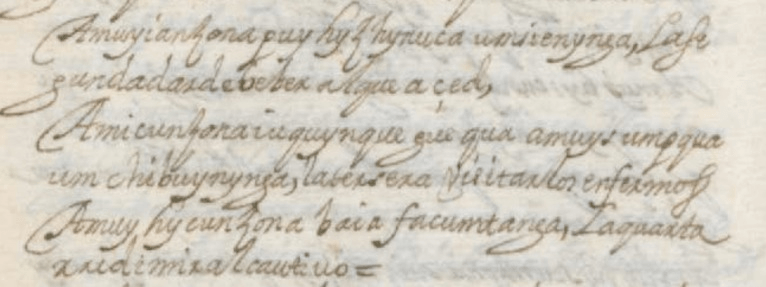 Amuyianzona puy hyzhynuca umsienynga, Lase
gundadardebeber alque a çed,
Amicunzona iuquynque gue qua amuys umpqua
um chibuynynga, latersera Visitar los enfermos
Amuy hycunzona baia facumtanga, Laquarta
rredimiralcautivo=